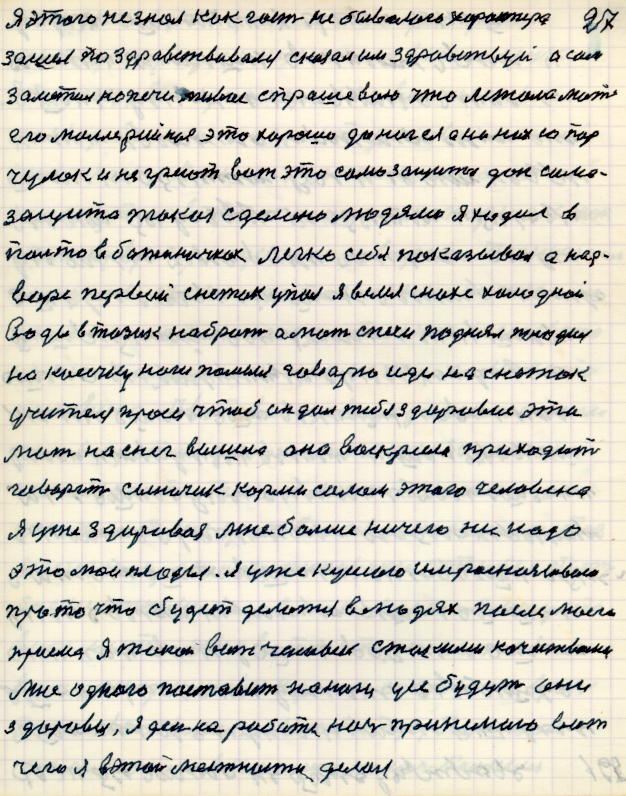 Я этого не знал как гость не бывалого характера 27
зашел поздравствовался сказал им здравствуй а сам
заметил на печи спрашеваю что лежала мать
его это хорошо да ног ана них
чулок и не греют вот это самозащита дак само-
защита такая сделано людями я ходил в
пальто в ботиничках легко себя показывал а на д-
воре первый снежок упал я велел снохе холодной
воды в тазик набрать а мать с печи поднял посадил
на коечку ноги помыл говарю иди на снежок
учителя проси чтоб он дал тебе здаровие эта
мать на снег вышла она васкресла приходить
говарить сыночик корми салом этого человека
я уже здаровая мне болше ничего ни надо
это маи плоды. я уже кушаю им расказоваю
про то что будет делатся в людях после моего
приема я такой вот человек с такими качествами
мне одного поставить на ноги уе будут они
здаровы, я ден на работи ноч принемаю вот
чего я в этой местности делал